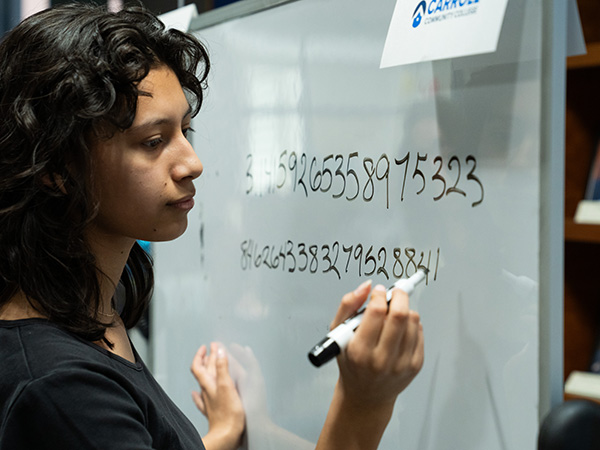 CARROLL
COMMUNITY COLLEGE
3.14159265358975323
8462643383279528841